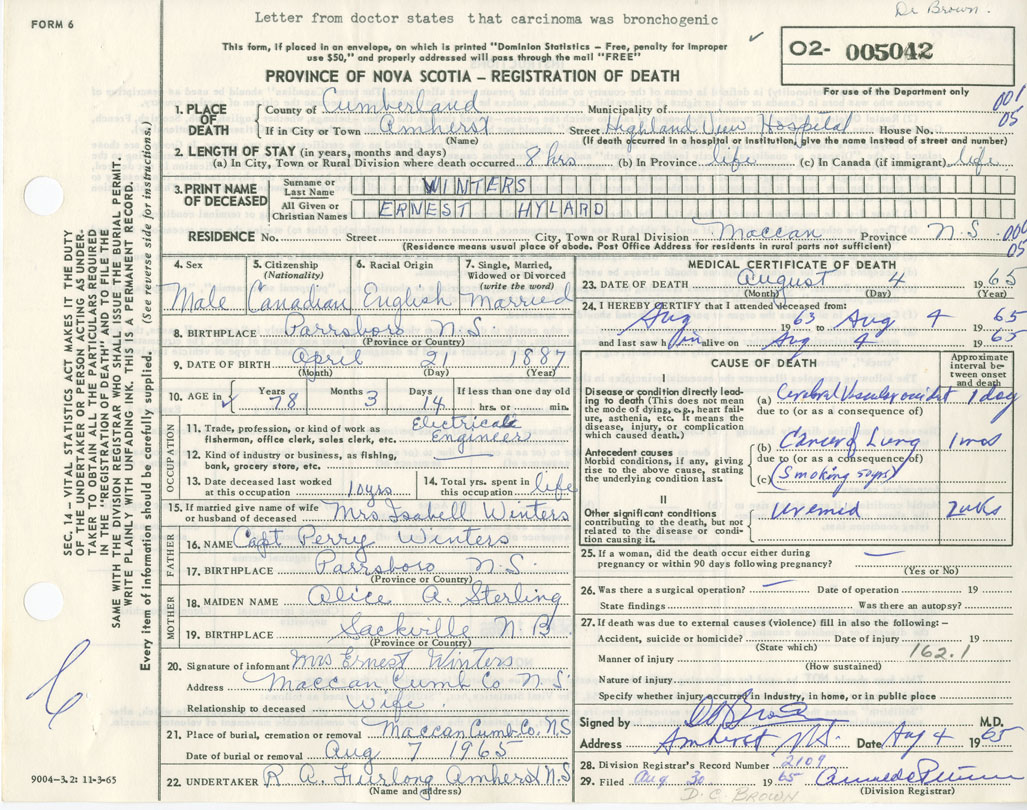 Dr Brown.
FORM 6
Letter from doctor states that carcinoma was bronchogenic
This form, if placed in an envelope, on which is printed "Dominion Statistics – Free, penalty for improper
use $50," and properly addressed will pass through the mail "FREE"
O2- 005042
PROVINCE OF NOVA SCOTIA – REGISTRATION OF DEATH
For use of the Department only
001
05
1. PLACE OF DEATH
County of Cumberland Municipality of
If in City or Town Amherst Street Highland View Hospital House No.
(Name) (If death occurred in a hospital or institution, give the name instead of street and number)
2. LENGTH OF STAY (in years, months and days)
(a) In City, Town or Rural Division where death occurred 8 hrs (b) In Province life (c) In Canada (if immigrant) life
3. PRINT NAME OF DECEASED
Surname or Last Name WINTERS
All Given or Christian Names ERNEST HYLARD
RESIDENCE No. Street City, Town or Rural Division Maccan Province N.S.
(Residence means usual place of abode. Post Office Address for residents in rural parts not sufficient)
05
SEC. 14 – VITAL STATISTICS ACT MAKES IT THE DUTY
OF THE UNDERTAKER OR PERSON ACTING AS UNDER-
TAKER TO OBTAIN ALL THE PARTICULARS REQUIRED
IN THE "REGISTRATION OF DEATH" AND TO FILE THE
SAME WITH THE DIVISION REGISTRAR WHO SHALL ISSUE THE BURIAL PERMIT.
WRITE PLAINLY WITH UNFADING INK. THIS IS A PERMANENT RECORD.
Every item of information should be carefully supplied. (See reverse side for instructions.)
4. Sex Male
5. Citizenship (Nationality) Canadian
6. Racial Origin English
7. Single, Married, Widowed or Divorced (write the word) Married
8. BIRTHPLACE Parrsboro N.S.
(Province or Country)
9. DATE OF BIRTH April 21 1887
(Month) (Day) (Year)
10. AGE in Years 78 Months 3 Days 14 If less than one day old hrs. or min.
OCCUPATION
11. Trade, profession, or kind of work as fisherman, office clerk, sales clerk, etc. Electrical Engineer
12. Kind of industry or business, as fishing, bank, grocery store, etc.
13. Date deceased last worked at this occupation 10 yrs
14. Total yrs. spent in this occupation life
15. If married give name of wife or husband of deceased Mrs Isabell Winters
FATHER
16. NAME Capt Perry Winters
17. BIRTHPLACE Parrsboro N.S.
(Province or Country)
MOTHER
18. MAIDEN NAME Alice A. Sterling
19. BIRTHPLACE Sackville N.B.
(Province or Country)
20. Signature of informant Mrs Ernest Winters
Address Maccan Cumb Co N.S.
Relationship to deceased Wife.
21. Place of burial, cremation or removal Maccan Cumb. Co. N.S
Date of burial or removal Aug 7 1965
22. UNDERTAKER R. A. Furlong Amherst N.S
(Name and address)
9004–3.2: 11-3-65
MEDICAL CERTIFICATE OF DEATH
23. DATE OF DEATH August 4 1965
(Month) (Day) (Year)
24. I HEREBY CERTIFY that I attended deceased from:
Aug 1963 to Aug 4 1965
and last saw him alive on Aug 4 1965
CAUSE OF DEATH
Approximate interval between onset and death
I
Disease or condition directly leading to death (This does not mean the mode of dying, e.g., heart failure, asthenia, etc. It means the disease, injury, or complication which caused death.)
(a) Cerebral Vascular accident 1 day
due to (or as a consequence of)
Antecedent causes
Morbid conditions, if any, giving rise to the above cause, stating the underlying condition last.
(b) Cancer of Lung 1 mos
due to (or as a consequence of)
(c) (Smoking 50 yrs)
II
Other significant conditions
contributing to the death, but not related to the disease or condition causing it.
uremia 2 wks
25. If a woman, did the death occur either during pregnancy or within 90 days following pregnancy?
(Yes or No)
26. Was there a surgical operation? Date of operation 19
State findings Was there an autopsy?
27. If death was due to external causes (violence) fill in also the following: –
Accident, suicide or homicide? Date of injury 19
(State which) 162.1
Manner of injury
(How sustained)
Nature of injury
Specify whether injury occurred in industry, in home, or in public place
Signed by DC Brown M.D.
Address Amherst N.S. Date Aug 4 1965
28. Division Registrar's Record Number 2109
29. Filed Aug 30 1965
(Division Registrar)
D. C BROWN